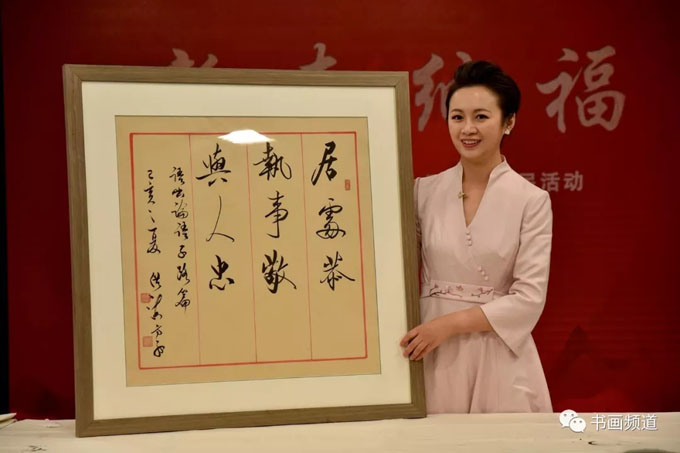 福
活动
居處恭
執事敬
與人忠
語出論語子路篇
己亥之夏
书画频道